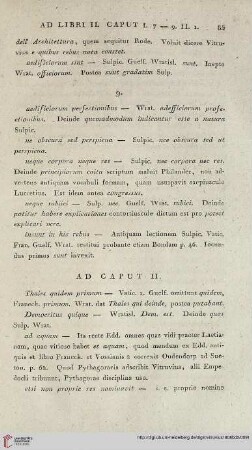 AD LIBRI II. CAPUT I. 7 — 9. II. 1. 65
dell Architettura, quem sequitur Rode. Voluit dicere Vitru-
vius e quibus rebus nata constet.
aedificiorum sint — Sulpic. Guelf. Wratisl. sunt. Inepte
Wrat. officiorum. Postea sunt gradatim Sulp.
9.
aedificiorum perfectionibus — Wrat. aedificiorum profe-
ctionibus. Deinde quemadmodum indicantur esse a natura
Sulpic.
ne obscura sed perspicua — Sulpic. nec obscura sed ut
perspicua.
neque corpora neque res — Sulpic. nec corpora nec res.
Deinde principiorum coitu scriptum maluit Philander, non ad-
vertens antiquum vocabuli formam, quam usurpavit saepiuscule
Lucretius. Est idem ortus congressus.
neque subici — Sulp. nec. Guelf. Wrat. subici. Deinde
patitur habere explicationes contortiuscule dictum est pro potest
explicari vere.
insunt in his rebus — Antiquam lectionem Sulpic. Vatic.
Fran. Guelf. Wrat. restitui probante etiam Bondam p. 46. Iocun-
dus primus sunt invexit.
AD CAPUT II.
Thales quidem primum — Vatic. 2. Guelf. omittunt quidem,
Franech. primum. Wrat. dat Thales qui deinde, postea putabant.
Democritus quique — Wratisl. Dem. est. Deinde quare
Sulp. Wrat.
ad aquam — Ita recte Edd. omnes quae vidi praeter Laetia-
nam, quae vitiose habet et aquam, quod mendum ex Edd. anti-
quis et libro Franek. et Vossiano a excerpsit Oudendorp ad Sue-
ton. p. 61. Quod Pythagoricis adscribit Vitruvius, alii Empe-
docli tribuunt, Pythagorae disciplina uso.
etsi non proprie res nominavit — i. e. proprio nomine